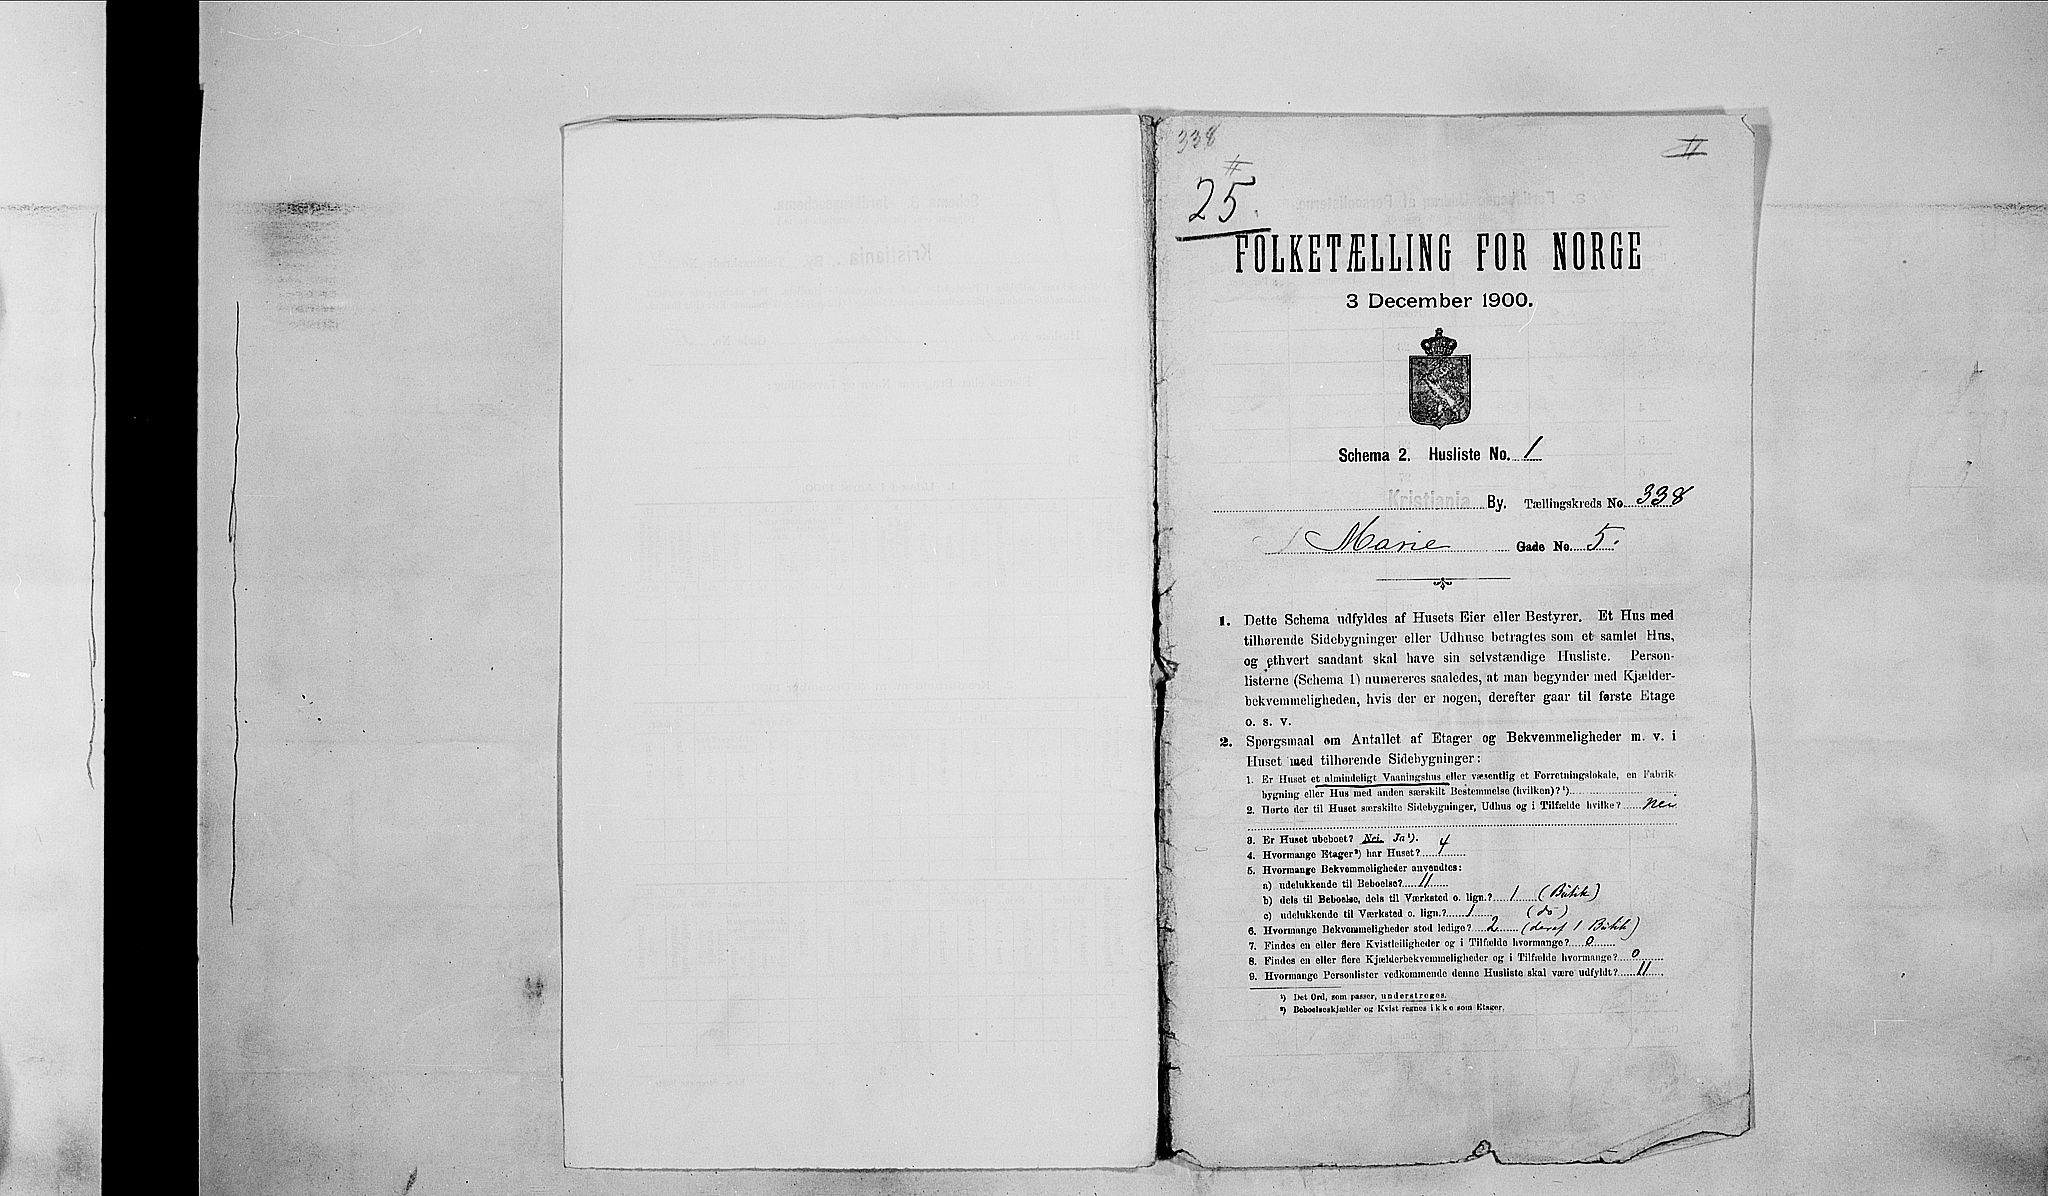 338
#
11
25.
FOLKETÆLLING FOR NORGE
3 December 1900.
Schema 2. Husliste No. 1
Kristiania By. Tællingskreds No. 338
Marie Gade No. 5.
1. Dette Schema udfyldes af Husets Eier eller Bestyrer. Et Hus med
tilhørende Sidebygninger eller Udhuse betragtes som et samlet Hus,
og ethvert saadant skal have sin selvstændige Husliste. Person-
listerne (Schema 1) numereres saaledes, at man begynder med Kjælder-
bekvemmeligheden, hvis der er nogen, derefter gaar til første Etage
o. s. v.
2. Spørgsmaal om Antallet af Etager og Bekvemmeligheder m. v. i
Huset med tilhørende Sidebygninger:
1. Er Huset et almindeligt Vaaningshus eller væsentlig et Forretningslokale, en Fabrik-
bygning eller Hus med anden særskilt Bestemmelse (hvilken)? ¹)
2. Hørte der til Huset særskilte Sidebygninger, Udhus og i Tilfælde hvilke? Nei
3. Er Huset ubeboet? Nei. Ja ¹).
4. Hvormange Etager ²) har Huset? 4
5. Hvormange Bekvemmeligheder anvendtes:
a) udelukkende til Beboelse? 11
b) dels til Beboelse, dels til Værksted o. lign.? 1 (Butik)
c) udelukkende til Værksted o. lign.? 1 (do)
6. Hvormange Bekvemmeligheder stod ledige? 2 (deraf 1 Butik)
7. Findes en eller flere Kvistleiligheder og i Tilfælde hvormange? 0
8. Findes en eller flere Kjælderbekvemmeligheder og i Tilfælde hvormange? 0
9. Hvormange Personlister vedkommende denne Husliste skal være udfyldt? 11
¹) Det Ord, som passer, understreges.
²) Beboelseskjælder og Kvist regnes ikke som Etager.